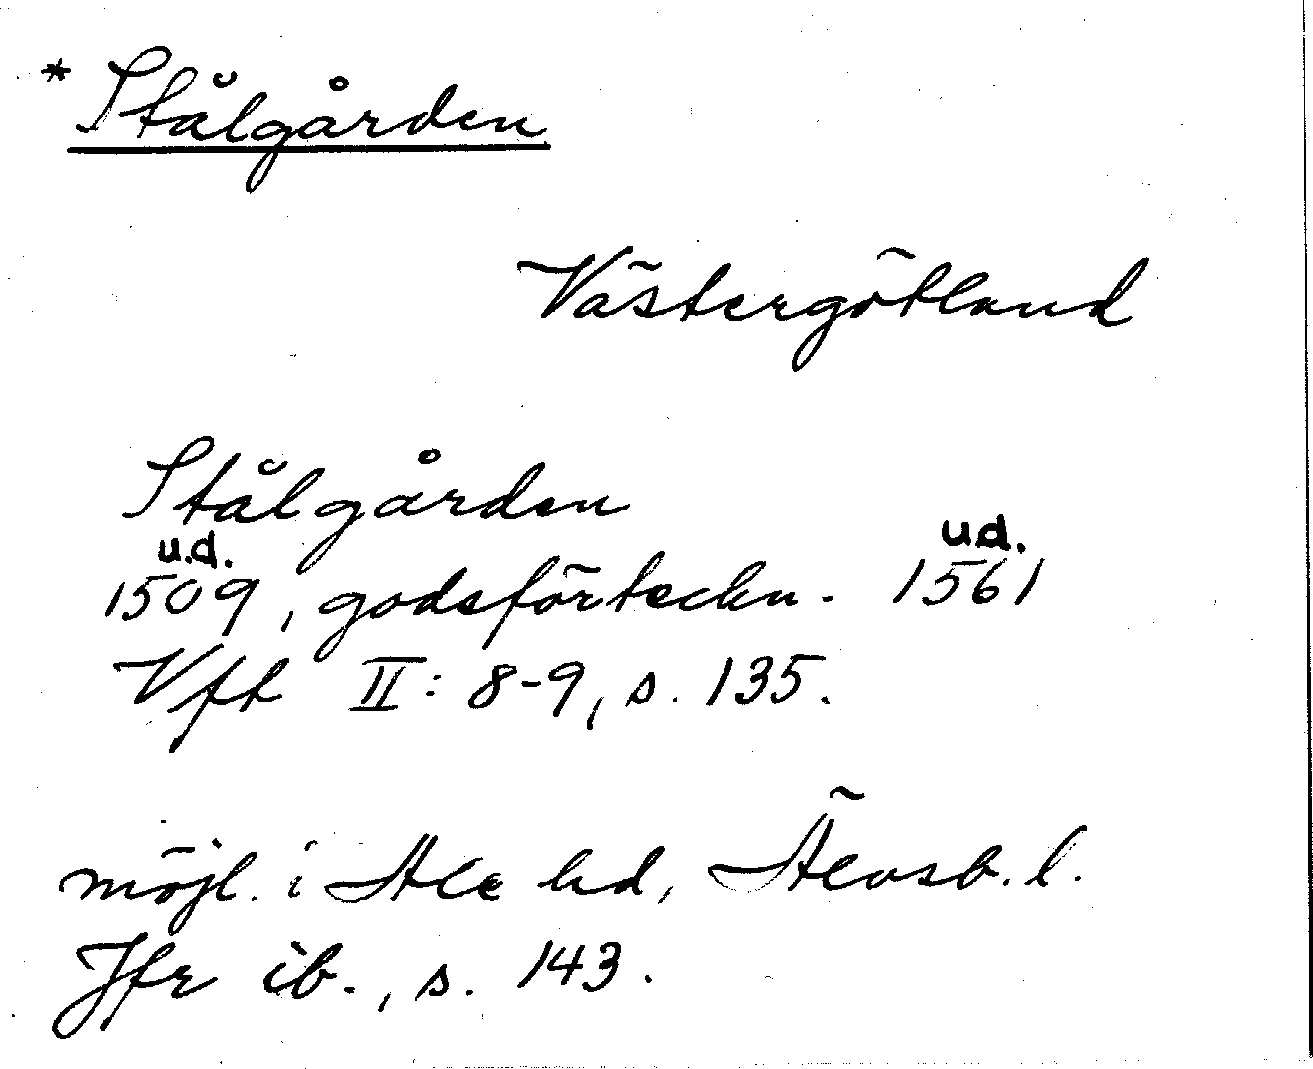 * Stålgården
Västergötland
Stålgården
u.d. u.d.
1509, godsförteckn. 1561
Vft II: 8-9, s. 135.
möjl. i Ale hd, Älvsb. l.
Jfr ib., s. 143.